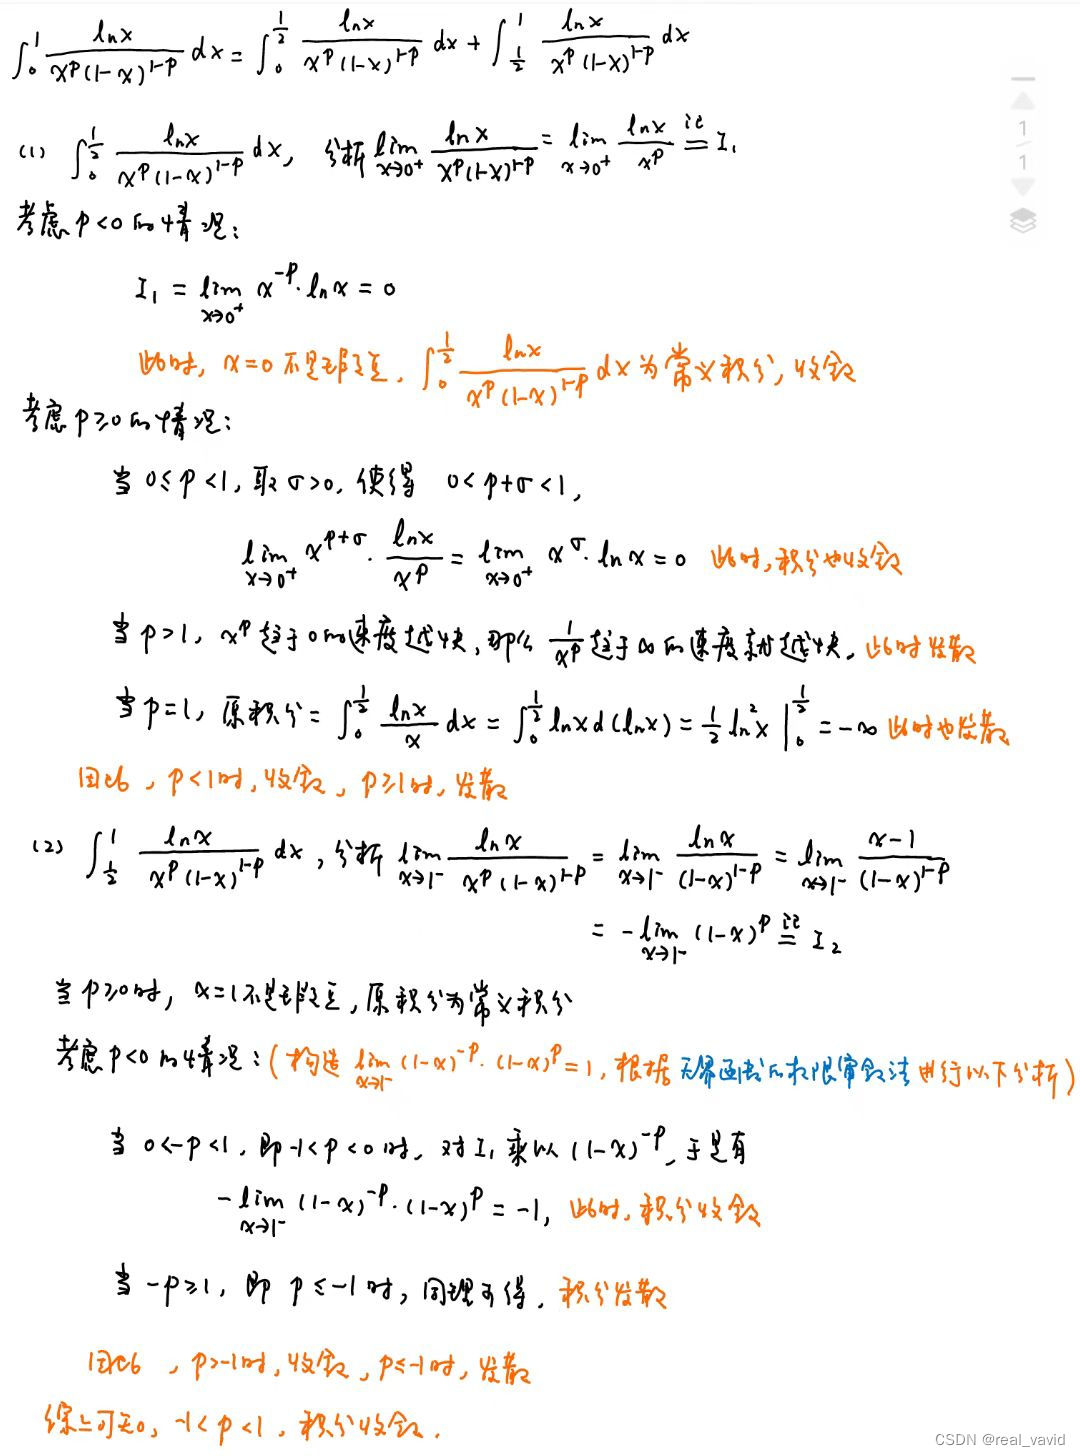 ∫₀¹ lnx/(x^p(1-x)^(1-p)) dx = ∫₀^(1/2) lnx/(x^p(1-x)^(1-p)) dx + ∫_(1/2)^1 lnx/(x^p(1-x)^(1-p)) dx
(1) ∫₀^(1/2) lnx/(x^p(1-x)^(1-p)) dx, 分析 lim_(x→0⁺) lnx/(x^p(1-x)^(1-p)) = lim_(x→0⁺) lnx/x^p ≝(记) I₁
1
1
考虑 p<0 的情况:
I₁ = lim_(x→0⁺) x^(-p)·lnx = 0
此时, x=0 不是瑕点, ∫₀^(1/2) lnx/(x^p(1-x)^(1-p)) dx 为常义积分, 收敛
考虑 p≥0 的情况:
当 0≤p<1, 取 σ>0, 使得 0<p+σ<1,
lim_(x→0⁺) x^(p+σ)·lnx/x^p = lim_(x→0⁺) x^σ·lnx = 0 此时,积分也收敛
当 p>1, x^p 趋于0的速度越快, 那么 1/x^p 趋于∞的速度就越快, 此时发散
当 p=1, 原积分 = ∫₀^(1/2) lnx/x dx = ∫₀^(1/2) lnx d(lnx) = 1/2 ln²x |₀^(1/2) = -∞ 此时也发散
因此, p<1时, 收敛, p≥1时, 发散
(2) ∫_(1/2)^1 lnx/(x^p(1-x)^(1-p)) dx, 分析 lim_(x→1⁻) lnx/(x^p(1-x)^(1-p)) = lim_(x→1⁻) lnx/(1-x)^(1-p) = lim_(x→1⁻) (x-1)/(1-x)^(1-p)
= -lim_(x→1⁻) (1-x)^p ≝(记) I₂
当 p≥0时, x=1不是瑕点, 原积分为常义积分
考虑 p<0 的情况: (构造 lim_(x→1⁻) (1-x)^(-p)·(1-x)^p = 1, 根据无界函数的极限审敛法进行以下分析)
当 0<-p<1, 即 -1<p<0 时, 对 I₁ 乘以 (1-x)^(-p), 于是有
-lim_(x→1⁻) (1-x)^(-p)·(1-x)^p = -1, 此时, 积分收敛
当 -p≥1, 即 p≤-1 时, 同理可得, 积分发散
因此, p>-1时, 收敛, p≤-1时, 发散
综上可知, -1<p<1, 积分收敛.
CSDN @real_vavid